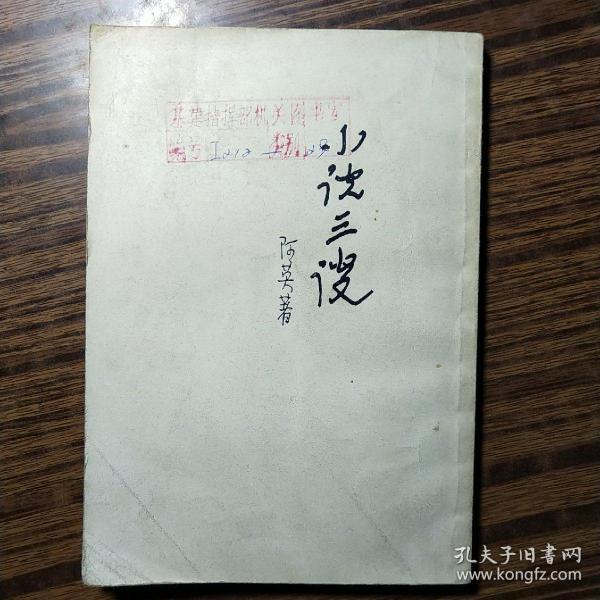 小说三谈
阿英著
指挥部机关图书室
孔夫子旧书网
www.kongfz.com